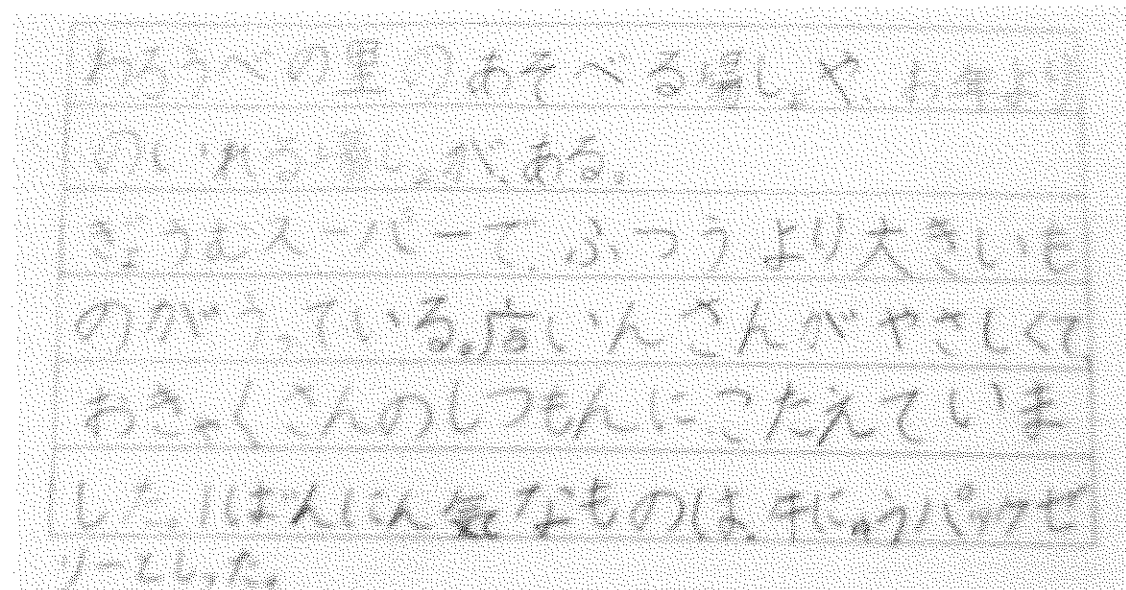 わらべの里のあそべる場しょや、
のいれる場しょがある。
ぎょうむスーパーで、ふつうより大きいも
のがうっている。店いんさんがやさしくて
おきゃくさんのしつもんにこたえていま
した。1ばんにん気なものは、牛にゅうパックゼ
リーでした。